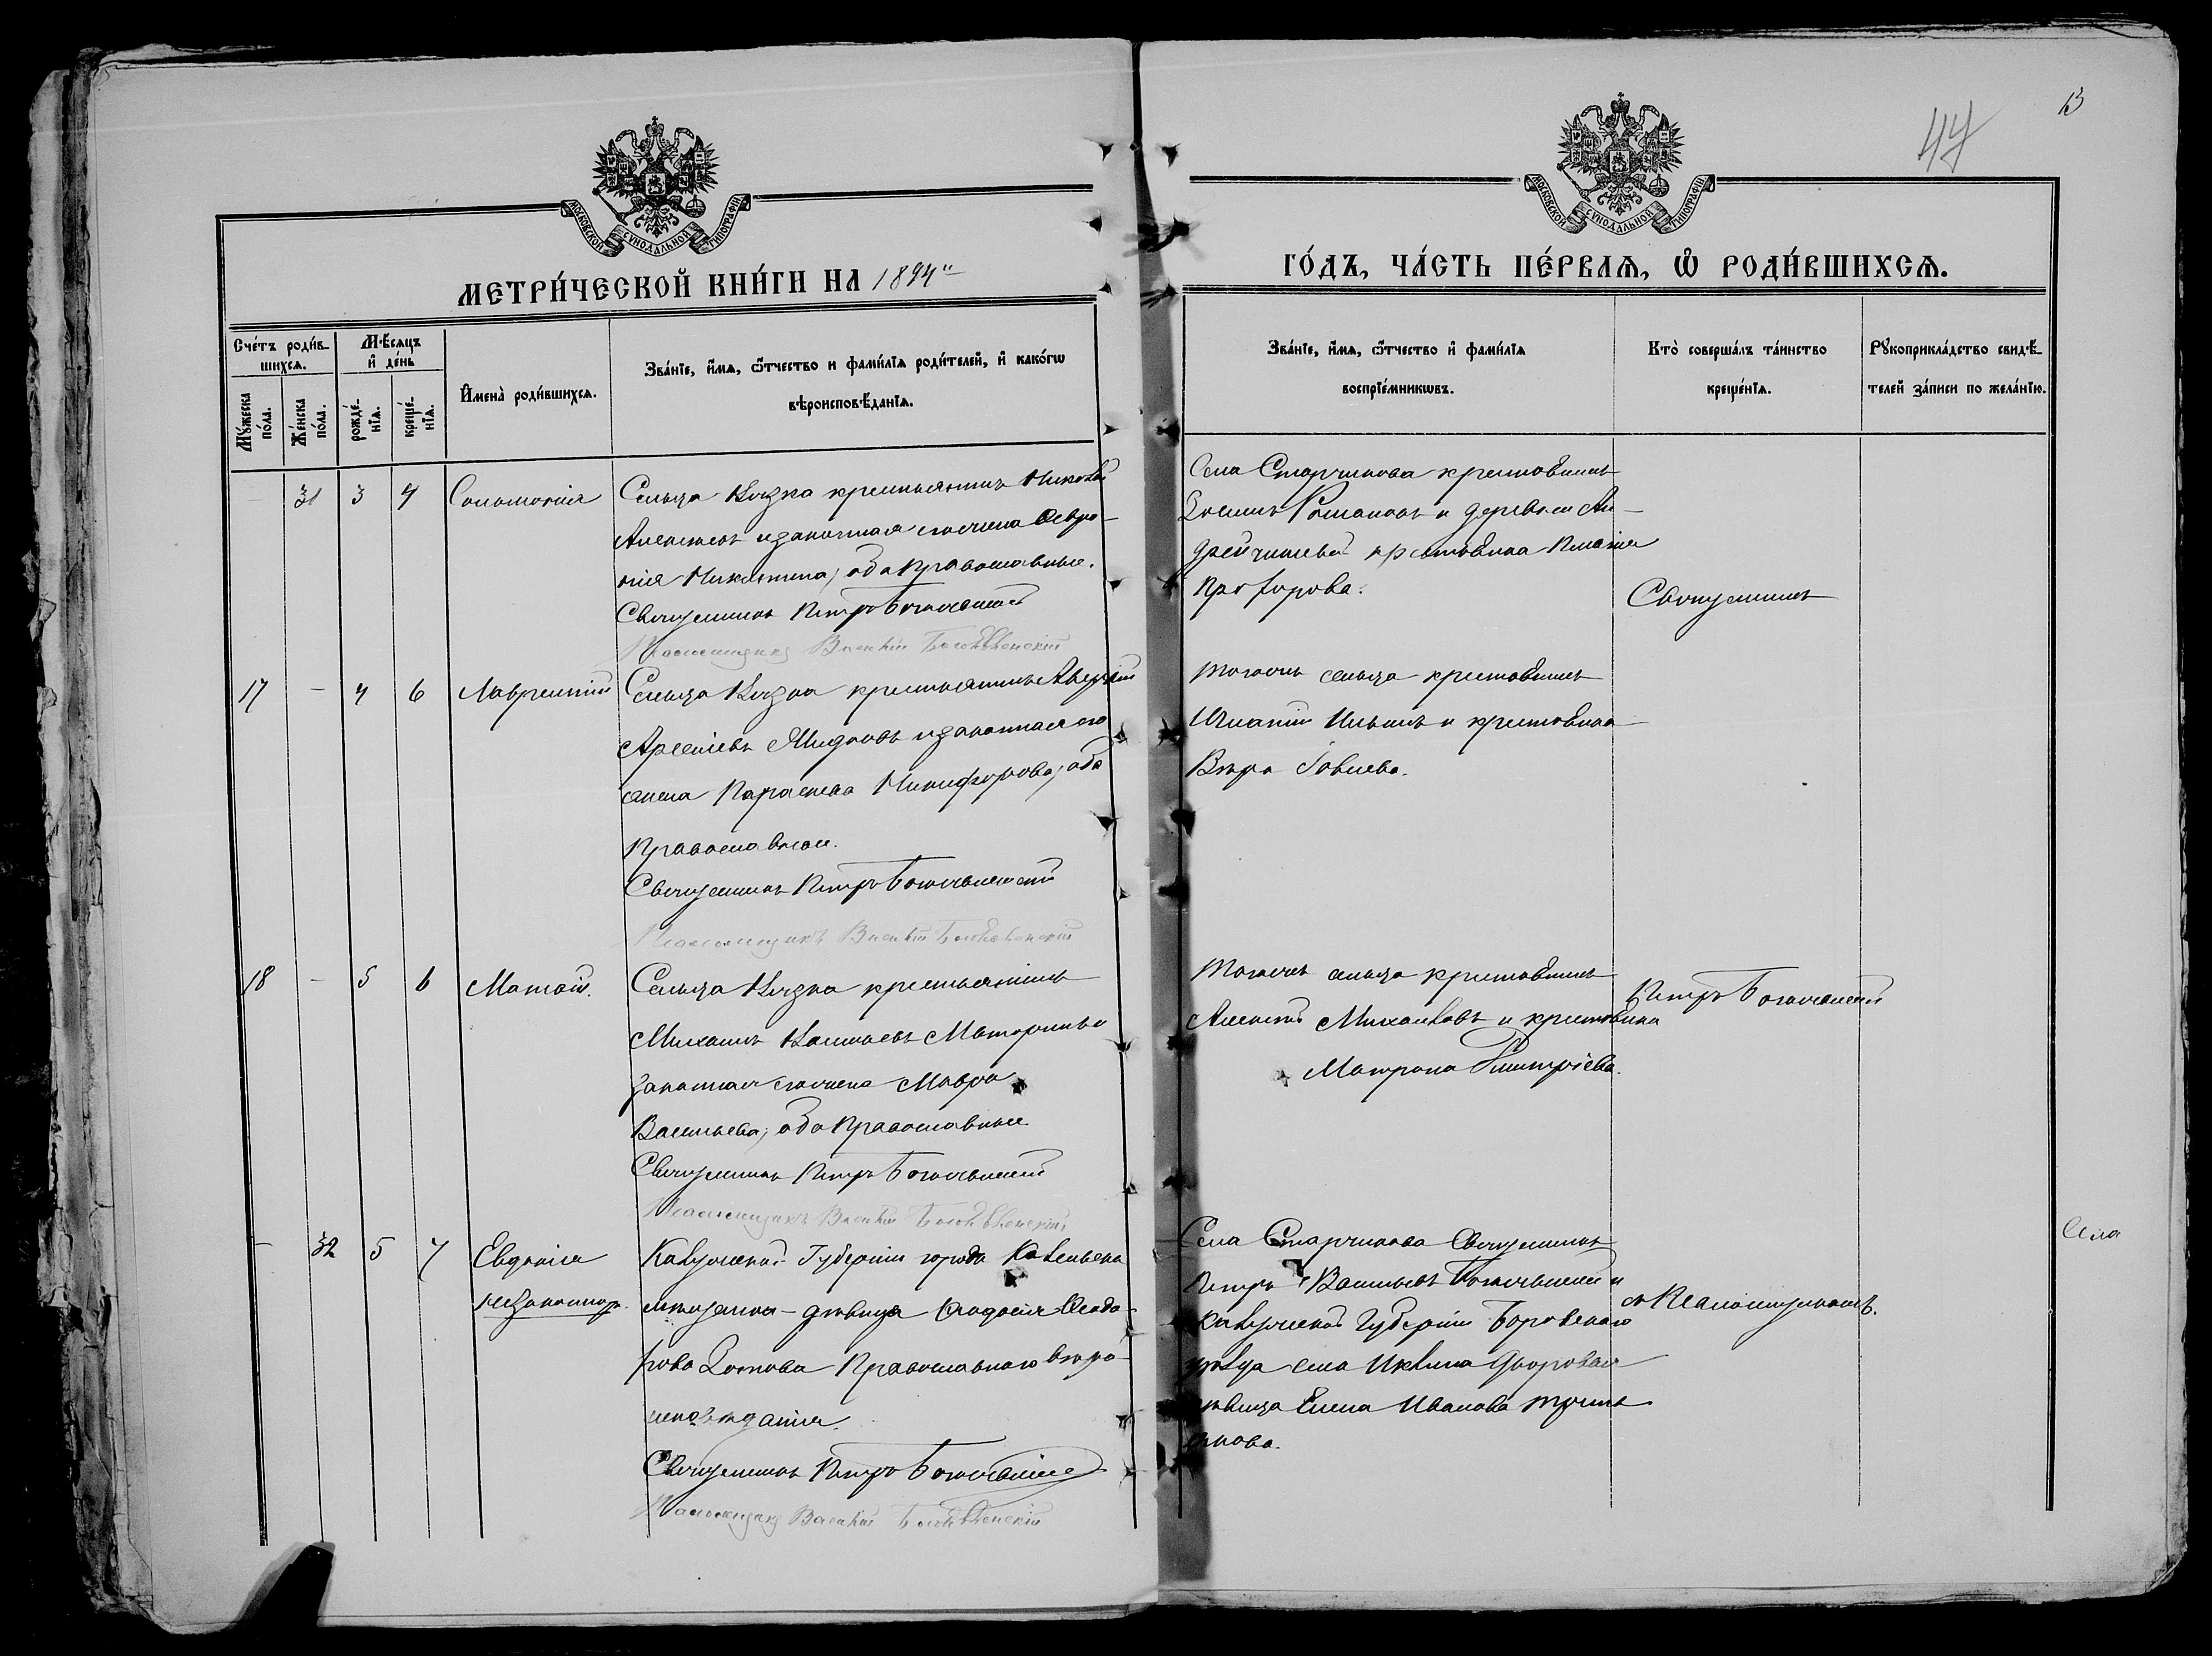 13
44
МОСКОВСКОЙ СѴНОДАЛЬНОЙ ТИПОГРАФІИ
МОСКОВСКОЙ СѴНОДАЛЬНОЙ ТИПОГРАФІИ
МЕТРИ́ЧЕСКОЙ КНИ́ГИ НА 1894й
ГО́ДЪ, ЧА́СТЬ ПЕ́РВАѦ, Ѽ РОДИ́ВШИХСѦ.
Сче́тъ роди́в-
шихсѧ.
Мѣ́сѧцъ
и҆ де́нь
Мꙋ́жеска по́ла.
Же́нска по́ла.
рожде́-
нїѧ.
креще́-
нїѧ.
И҆мена̀ роди́вшихсѧ.
Зва́нїе, и҆́мѧ, ѻ҆́тчество и фами́лїѧ роди́телей, и҆ како́гѡ
вѣроисповѣ́данїѧ.
Зва́нїе, и҆́мѧ, ѻ҆́тчество и҆ фами́лїѧ
воспрїе́мникѡвъ.
Кто̀ соверша́лъ та́инство
креще́нїѧ.
Рꙋкоприкла́дство свидѣ́-
телей за́писи по жела́нїю.
- 31 3 4 Соломонія
Сельца Клязна крестьянинъ Николай
Алексѣевъ и законная его жена Февро-
нія Никитина, оба православные.
Священникъ Петръ Богоявленскій
Псаломщикъ Василій Богоявленскій
Села Старчикова крестьянинъ
Романовъ и деревни Ан-
дрейчикова крестьянка
Прохорова.
Священникъ
17 - 4 6 Лаврентій
Сельца Клязна крестьянинъ
Арсеніевъ и законная его
жена Параскева Никифорова, оба
православные.
Священникъ Петръ Богоявленскій
Псаломщикъ Василій Богоявленскій
Тогоже сельца крестьянинъ
Игнатій Ильинъ и крестьянка
Вѣра Іовлева.
18 - 5 6 Матѳій.
Сельца Клязна крестьянинъ
Михаилъ Васильевъ и
законная его жена Мавра
Васильева, оба православные.
Священникъ Петръ Богоявленскій
Псаломщикъ Василій Богоявленскій
Тогоже сельца крестьянинъ
Алексѣй Михайловъ и крестьянка
Матрона Дмитріева.
Петръ Богоявленскій
- 32 5 7 Евдокія
незаконнор.
Калужской Губерніи города
мѣщанка-дѣвица Ѳеодо-
рова Зотова Православнаго вѣро-
исповѣданія.
Священникъ Петръ Богоявленскій
Псаломщикъ Василій Богоявленскій
Села Старчикова Священникъ
Петръ Васильевъ Богоявленскій и
Калужской Губерніи Боровскаго
уѣзда села Дворовая
дѣвица Елена Иванова
съ Псаломщикомъ.
Села